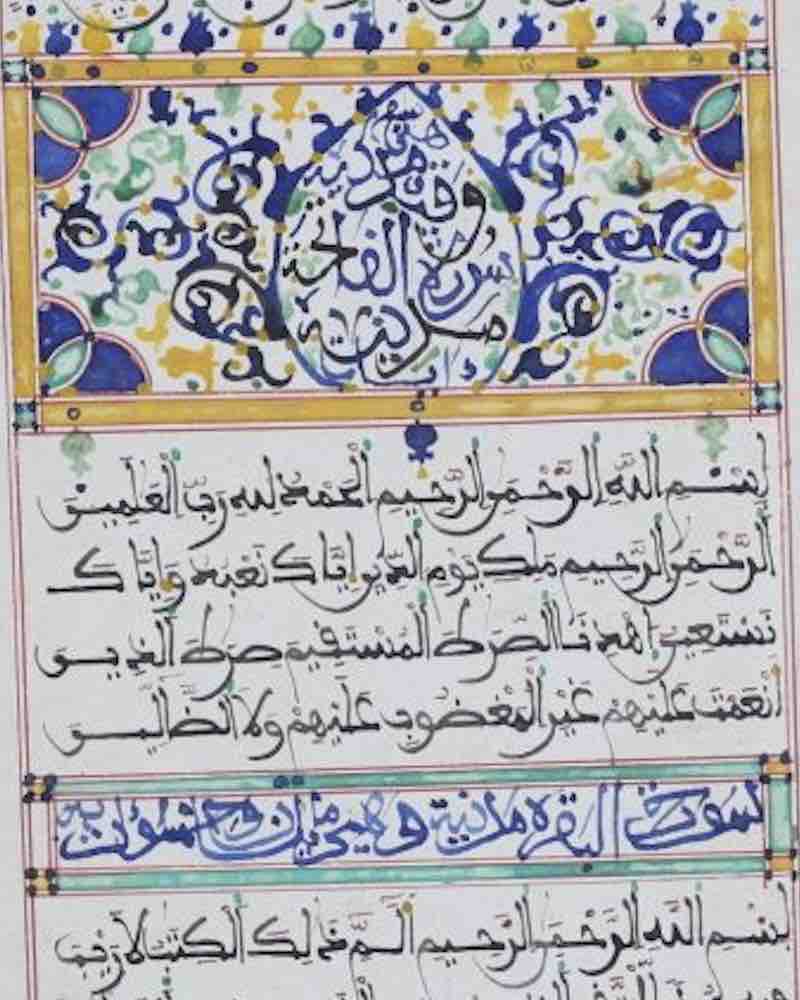 سورة الفاتحة
مدنية
بِسْمِ اللَّهِ الرَّحْمَنِ الرَّحِيمِ الْحَمْدُ لِلهِ رَبِّ الْعَلَمِينَ
الرَّحْمَنِ الرَّحِيمِ مَلِكِ يَوْمِ الدِّينِ إِيَّاكَ نَعْبُدُ وَإِيَّاكَ
نَسْتَعِينُ اِهْدِنَا الصِّرَطَ الْمُسْتَقِيمَ صِرَطَ الَّذِينَ
أَنْعَمْتَ عَلَيْهِمْ غَيْرِ الْمَغْضُوبِ عَلَيْهِمْ وَلَا الضَّالِّينَ
سورة البقره مدنية وهي
بِسْمِ اللَّهِ الرَّحْمَنِ الرَّحِيمِ الَمِّ ذَلِكَ الْكِتَبُ لَا رَيْبَ